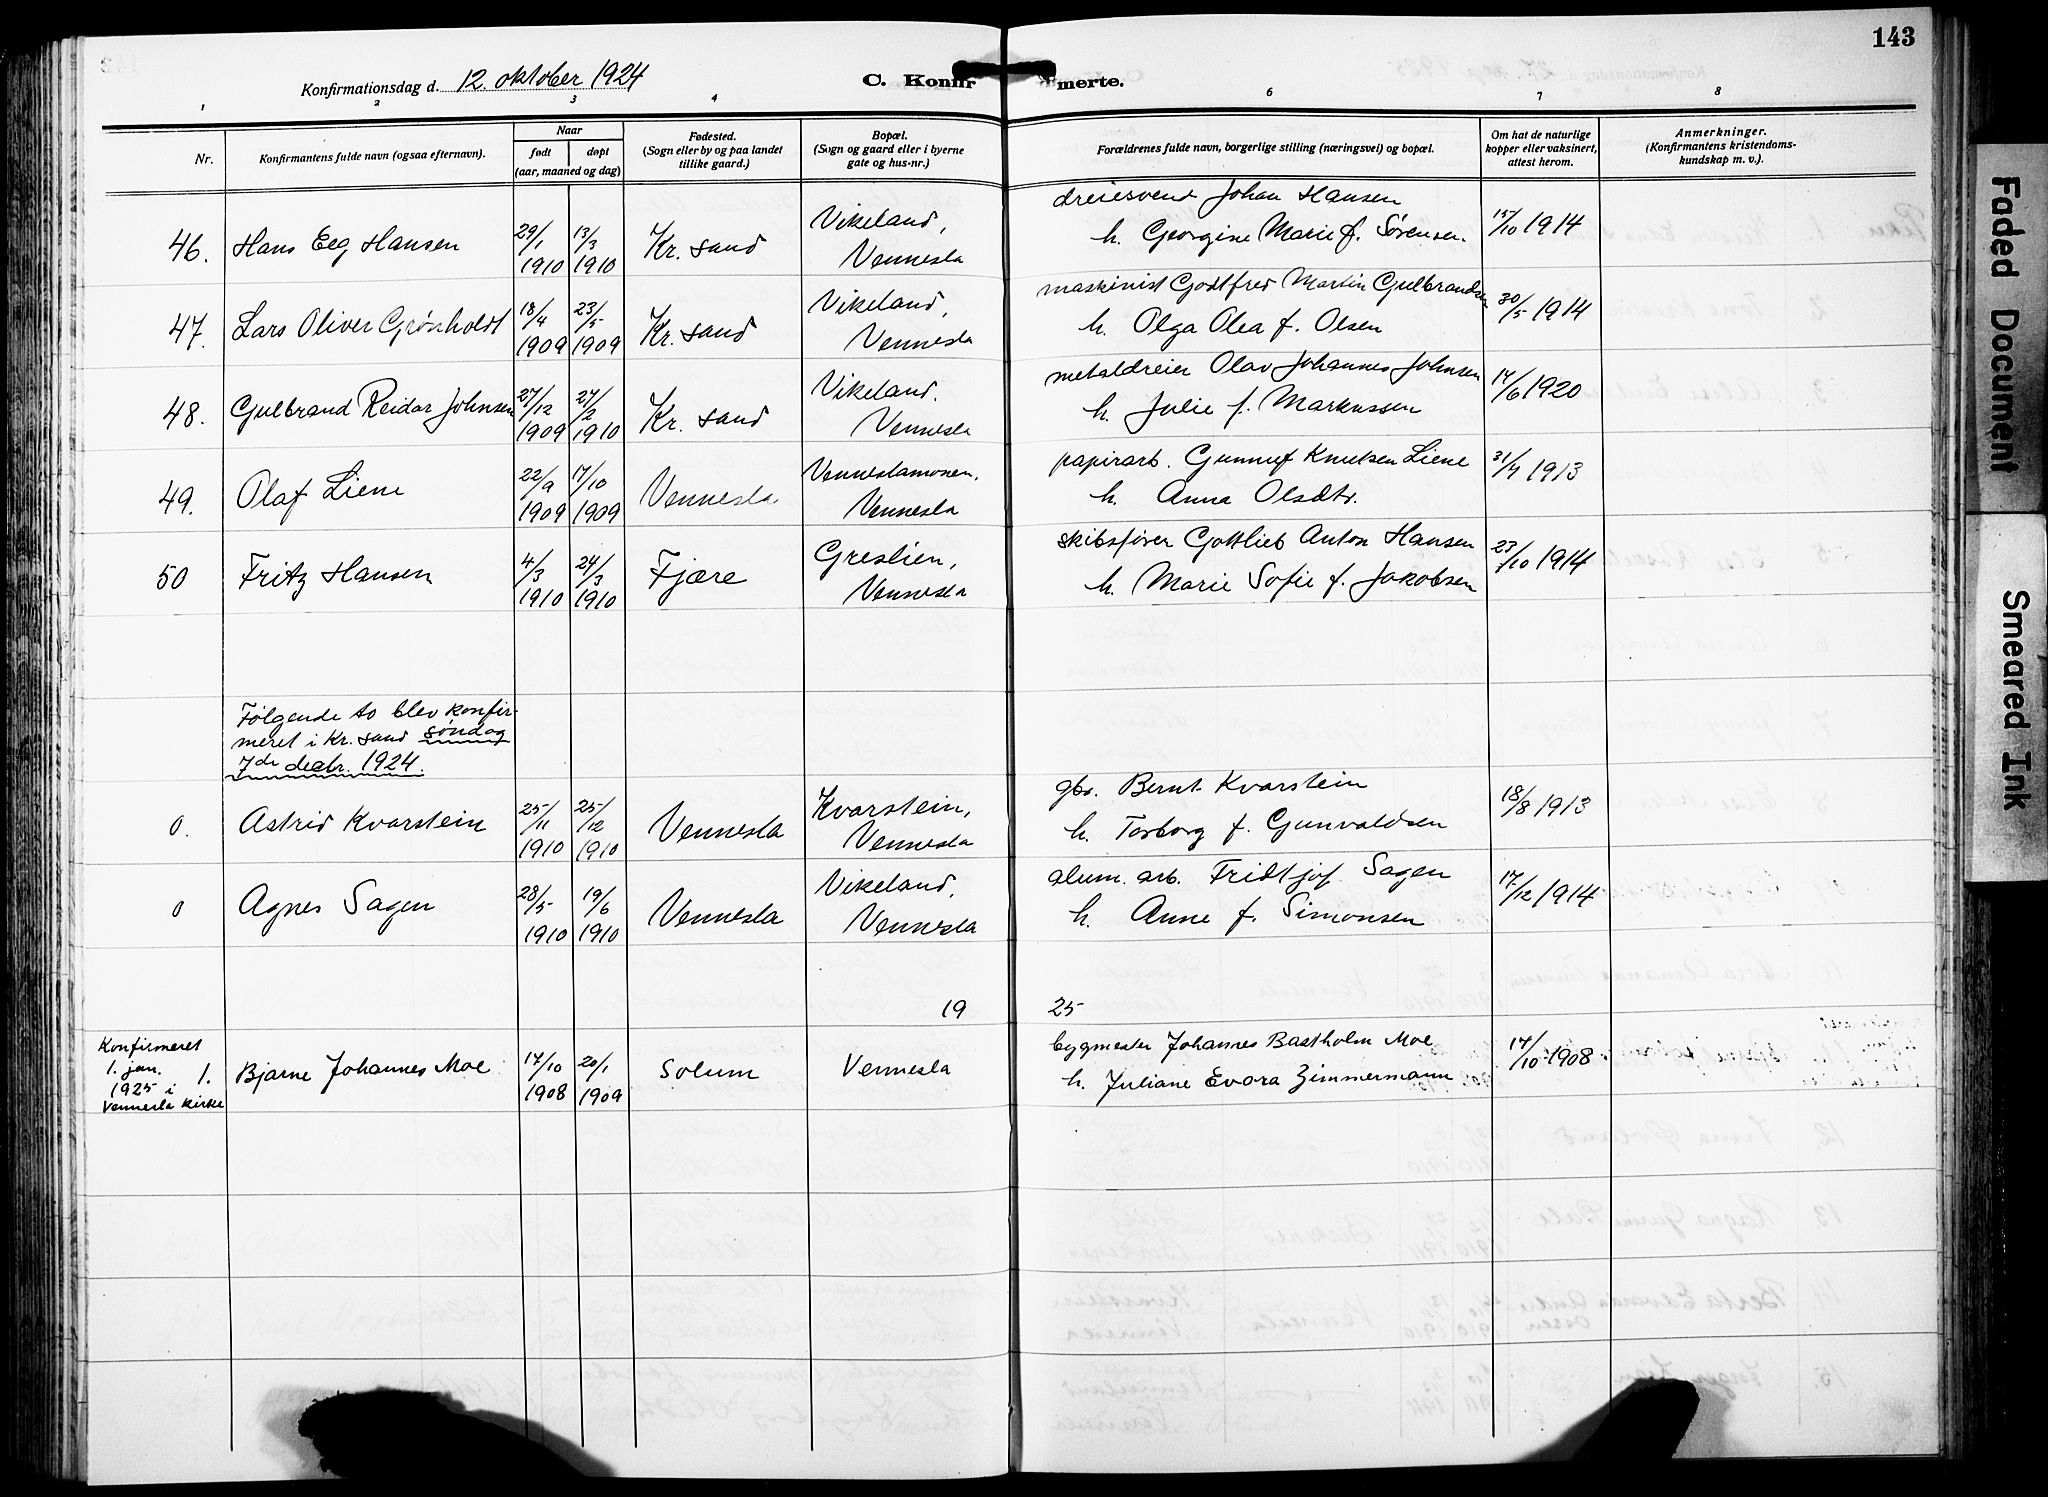 143
Konfirmationsdag d. 12. oktober 1924
C. Konfir merte.
1 2 3 4 6 7 8
Nr.
Konfirmantens fulde navn (ogsaa efternavn).
Naar
født døpt
(aar, maaned og dag)
Fødested.
(Sogn eller by og paa landet
tillike gaard.)
Bopæl.
(Sogn og gaard eller i byerne
gate og hus-nr.)
Forældrenes fulde navn, borgerlige stilling (næringsvei) og bopæl.
Om hat de naturlige
kopper eller vaksinert,
attest herom.
Anmerkninger.
(Konfirmantens kristendoms-
kundskap m. v.).
46. Hans Eeg Hansen 29/1 1910 13/3 1910 Kr. sand Vikeland, Vennesla
dreiesvend Johan Hansen
h. Georgine Marie f. Sørensen. 15/10 1914
47. Lars Oliver Grönholdt 18/4 1909 23/5 1909 Kr. sand Vikeland, Vennesla
maskinist Godtfred Martin Gulbrandsen
h. Olga Olea f. Olsen 30/5 1914
48. Gulbrand Reidar Johnsen 27/12 1909 27/2 1910 Kr. sand Vikeland, Vennesla
metaldreier Olav Johannes Johnsen
h. Julie f. Markussen 17/6 1920
49. Olaf Liene 22/9 1909 17/10 1909 Vennesla Venneslamonen, Vennesla
papirarb. Gunnuf Knutsen Liene
h. Anna Olsdtr. 31/7 1913
50 Fritz Hansen 4/3 1910 24/3 1910 Fjære Greslien, Vennesla
skibsfører Gottlieb Anton Hansen
h. Marie Sofie f. Jakobsen 23/10 1914
Følgende to blev konfir-
meret i Kr. sand søndag
7de decbr. 1924.
0. Astrid Kvarstein 25/11 1910 25/12 1910 Vennesla Kvarstein, Vennesla
gbr. Bernt Kvarstein
h. Torborg f. Gunvaldsen 18/8 1913
0 Agnes Sagen 28/5 1910 19/6 1910 Vennesla Vikeland, Vennesla
alum. arb. Fridtjof Sagen
h. Anne f. Simonsen 17/12 1914
19 25
Konfirmeret
1. jan.
1925 i
Vennesla kirke
1. Bjarne Johannes Moe 17/10 1908 20/1 1909 Solum Vennesla
bygmester Johannes Bastholm Moe
h. Juliane Evora Zimmermann 17/10 1908
Faded Document
Smeared Ink